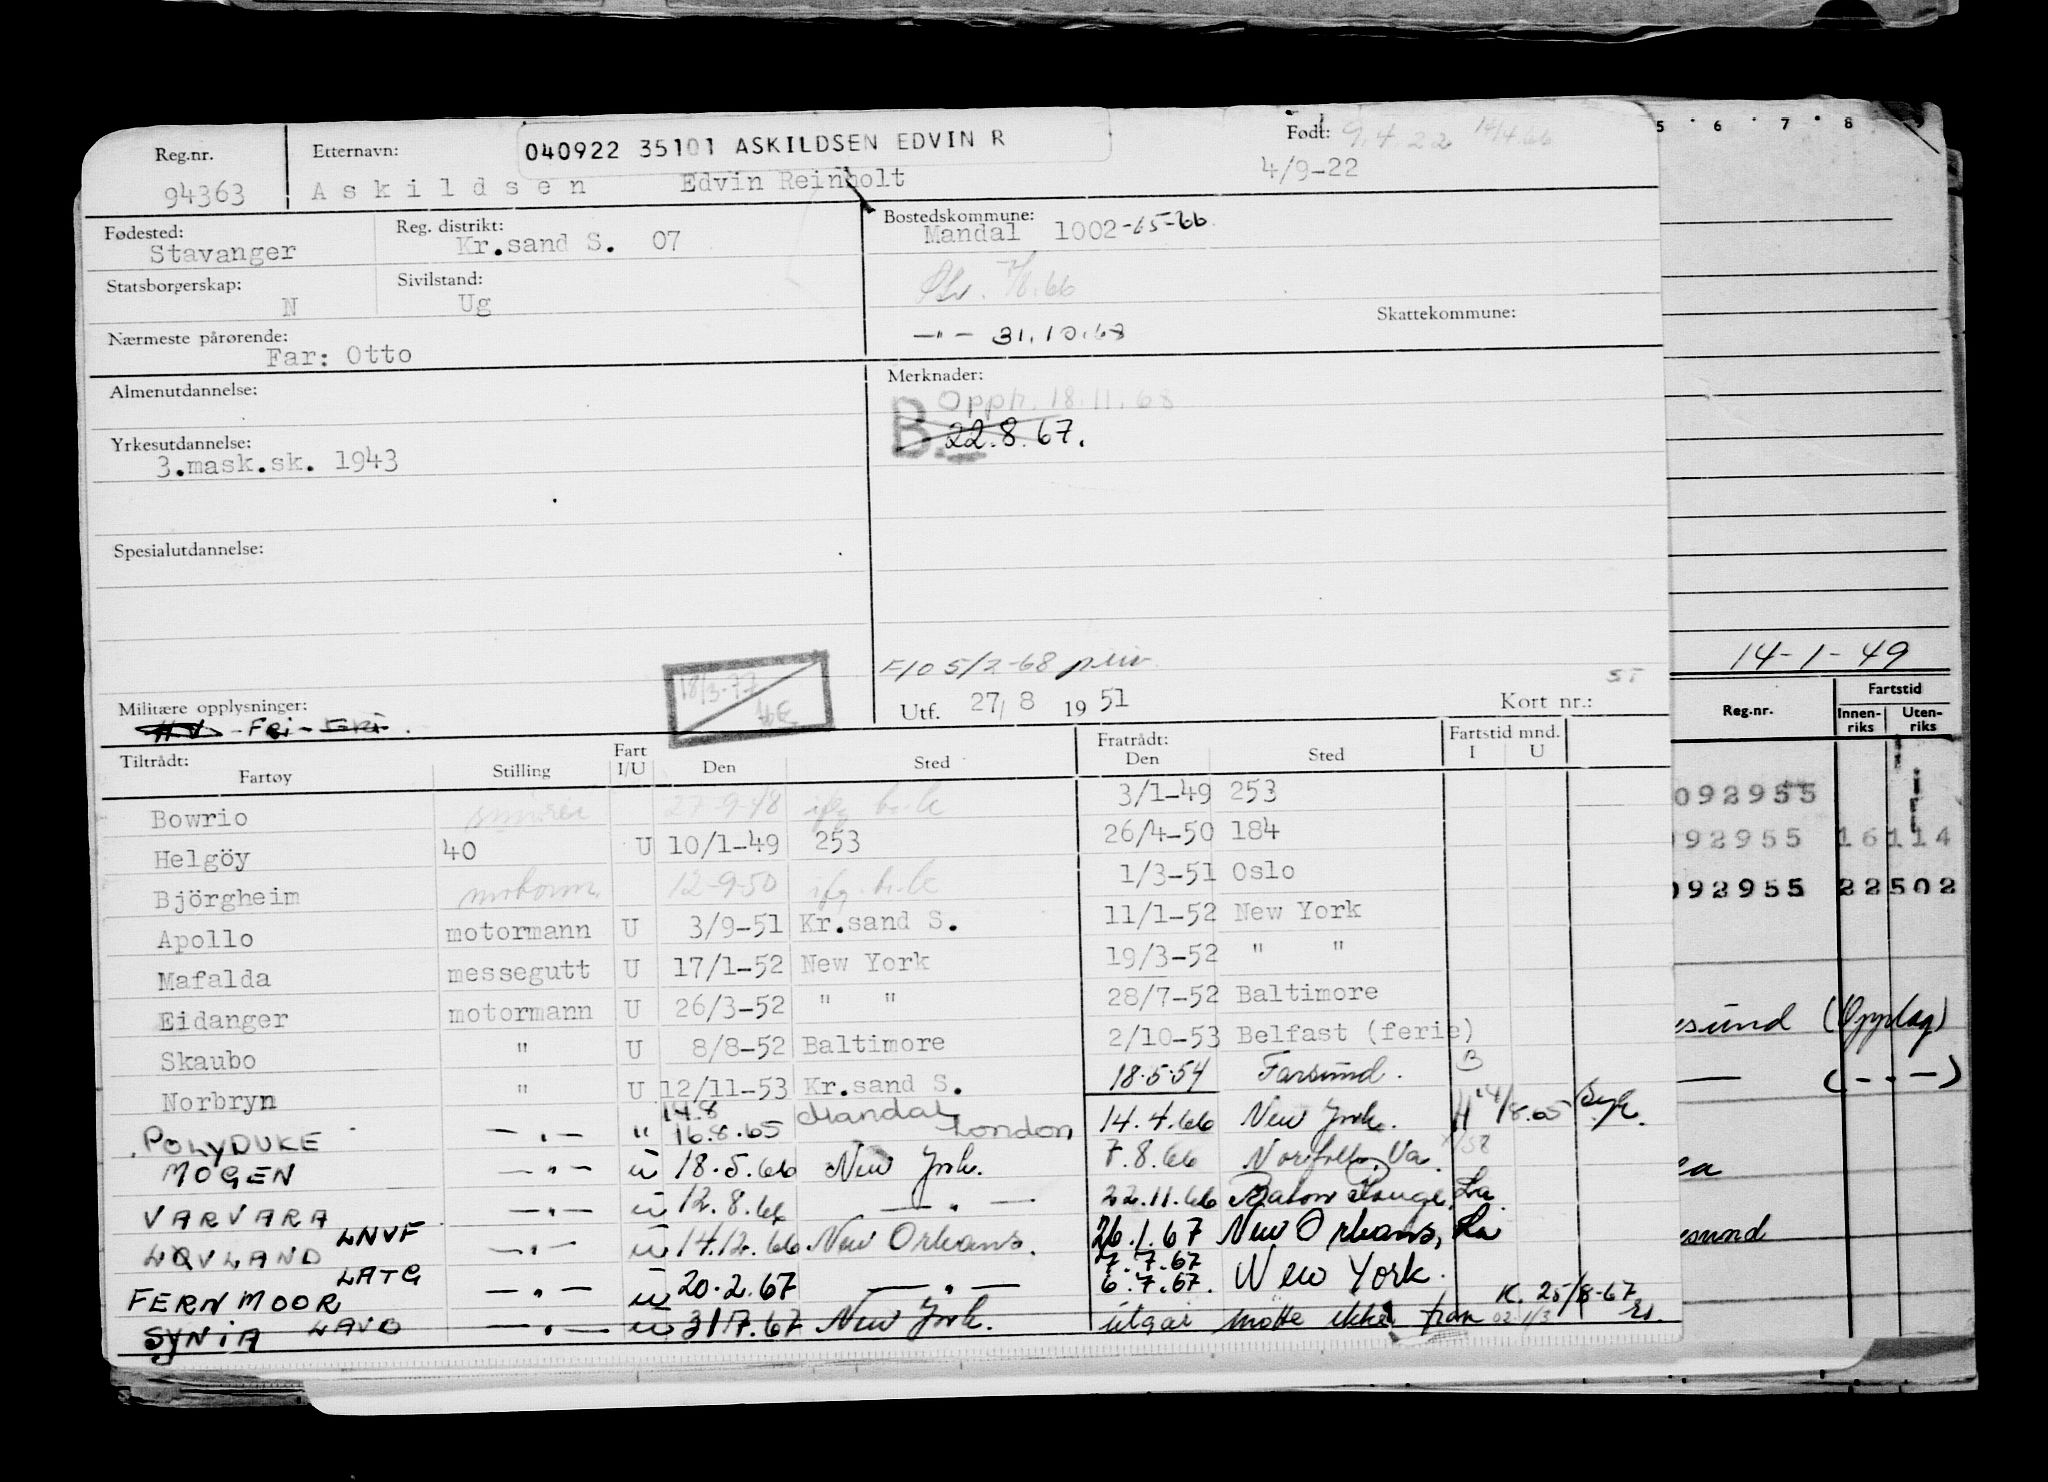 Reg.nr. Etternavn: 040922 35101 ASKILDSEN EDVIN R Født: 9.4.22 14/4.66
94363 Askildsen Edvin Reinholt 4/9-22
Fødested: Reg. distrikt: Bostedskommune:
Stavanger Kr.sand S. 07 Mandal 1002-65-66
Statsborgerskap: Sivilstand:
N Ug
Skattekommune:
Nærmeste pårørende: —"— 31.10.68
Far: Otto
Almenutdannelse: Merknader:
Opph. 18.11.68
B. 22.8.67.
Yrkesutdannelse:
3.mask.sk. 1943
Spesialutdannelse:
F/O 5/2-68
18/3-77
Militære opplysninger: Utf. 27/8 1951 Kort nr.:
H.V. - Fri -
Tiltrådt: Fratrådt: Fartstid mnd.
Fartøy Stilling Fart I/U Den Sted Den Sted I U
Bowrio 27-9-48 3/1-49 253
Helgöy 40 U 10/1-49 253 26/4-50 184
Björgheim motorm. 12-9-50 1/3-51 Oslo
Apollo motormann U 3/9-51 Kr.sand S. 11/1-52 New York
Mafalda messegutt U 17/1-52 New York 19/3-52 " "
Eidanger motormann U 26/3-52 " " 28/7-52 Baltimore
Skaubo " U 8/8-52 Baltimore 2/10-53 Belfast (ferie)
Norbryn " U 12/11-53 Kr.sand S. 18.5.54 Farsund. B
POLYDUKE —"— " 14.8 16.8.65 Mandal London 14.4.66 New York. 14/8.65 Syk.
MOGEN —"— u 18.5.66 New York. 7.8.66 Norfolk, Va.
VARVARA —"— u 12.8.66 —"— 22.11.66 Baton Rouge, La
LOVLAND LNVF —"— u 14.12.66 New Orleans. 26.1.67 New Orleans, La
7.7.67
FERNMOOR LATG —"— u 20.2.67 —"— 6.7.67. New York.
SYNIA LAVO —"— u 31.7.67 New York. utgår møtte ikke fram K. 25/8-67
5 · 6 · 7 · 8
14-1-49
Reg.nr. Fartstid
Innen-riks Uten-riks
092955
092955 16114
092955 22502
esund (Opplag)
— (-"-)
ea
esund